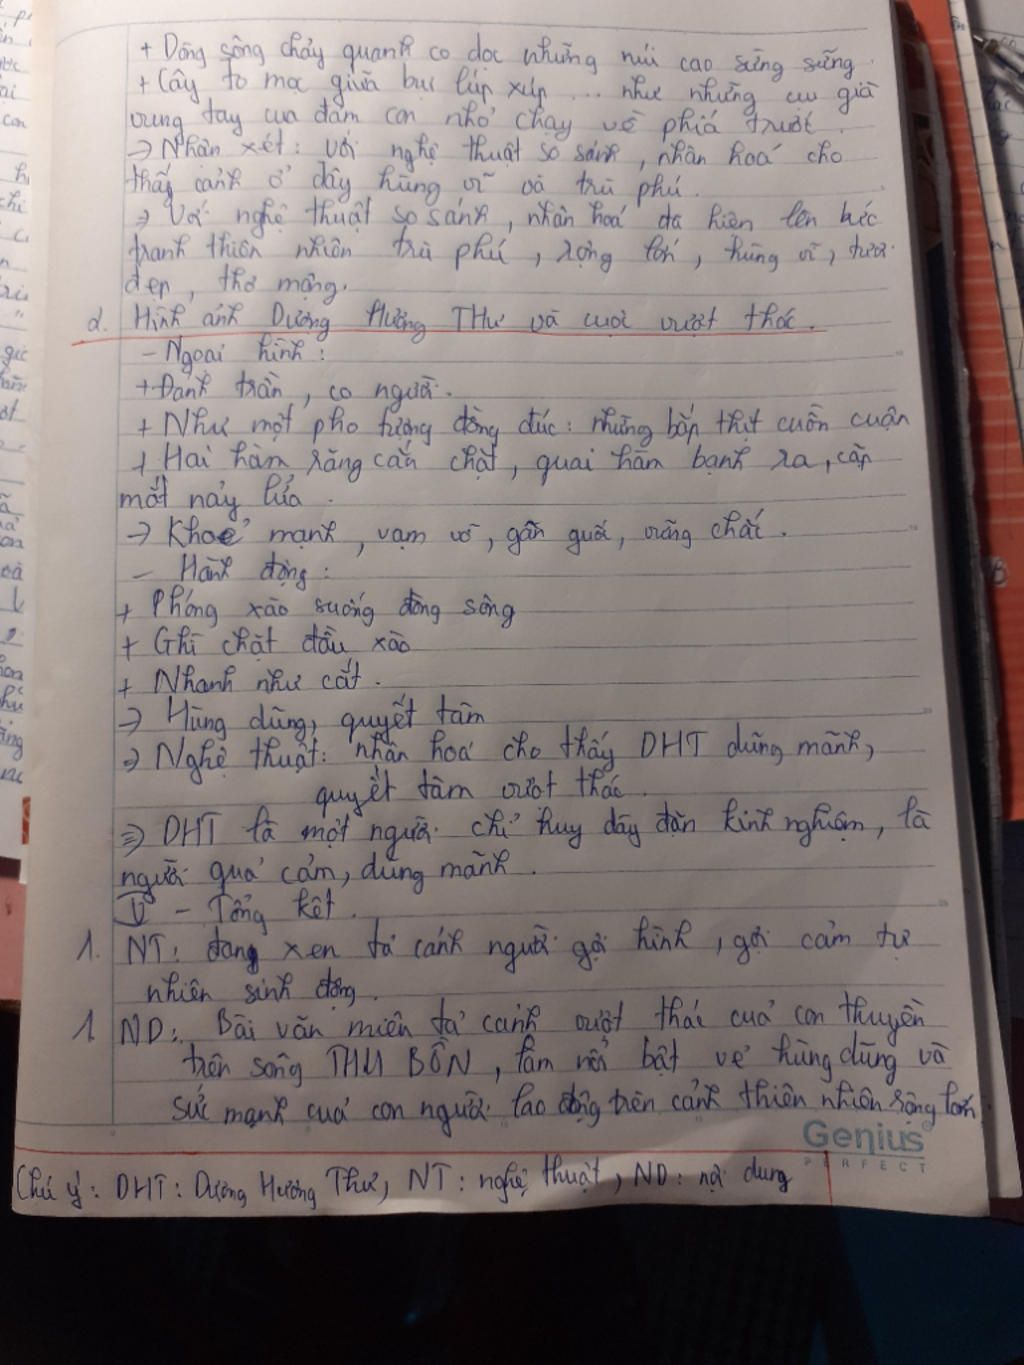 + Dòng sông chảy quanh co dọc những núi cao sừng sững.
+ Cây to mọc giữa bụi lúp xúp ... như những cụ già
vung tay cua đám con nhỏ chạy về phiá trướt.
→ Nhận xét: Với nghệ thuật so sánh, nhân hoá cho
thấy cảnh ở đây hùng vĩ và trù phú.
⇒ Với nghệ thuật so sánh, nhân hoá đã hiện lên bức
tranh thiên nhiên trù phú, rộng lớn, hùng vĩ, tươi
đẹp, thơ mộng.
2. Hình ảnh Dượng Hương THư và cuộc vượt thác.
- Ngoại hình:
+ Đánh trần, co người.
+ Như một pho tượng đồng đúc: những bắp thịt cuồn cuộn
+ Hai hàm răng cắn chặt, quai hàm bạnh ra, cặp
mắt nảy lửa.
→ Khoẻ mạnh, vạm vỡ, gân guốc, vững chắc.
- Hành động:
+ Phóng xào suống dòng sông
+ Ghì chặt đầu xào
+ Nhanh như cắt.
→ Hùng dũng, quyết tâm
⇒ Nghệ thuật: nhân hoá cho thấy DHT dũng mãnh,
quyết tâm vượt thác.
⇒ DHT là một người chỉ huy dày dặn kinh nghiệm, là
người quả cảm, dũng mãnh.
IV - Tổng kết.
1. NT: đang xen tả cảnh người gợi hình, gợi cảm tự
nhiên sinh động.
1. ND: Bài văn miên tả cảnh vượt thác cuả con thuyền
trên sông THU BỒN, làm nổi bật vẻ hùng dũng và
sức mạnh cuả con người lao động trên cảnh thiên nhiên rộng lớn.
Genius
PERFECT
Chú ý: DHT: Dượng Hương Thư, NT: nghệ thuật, ND: nội dung